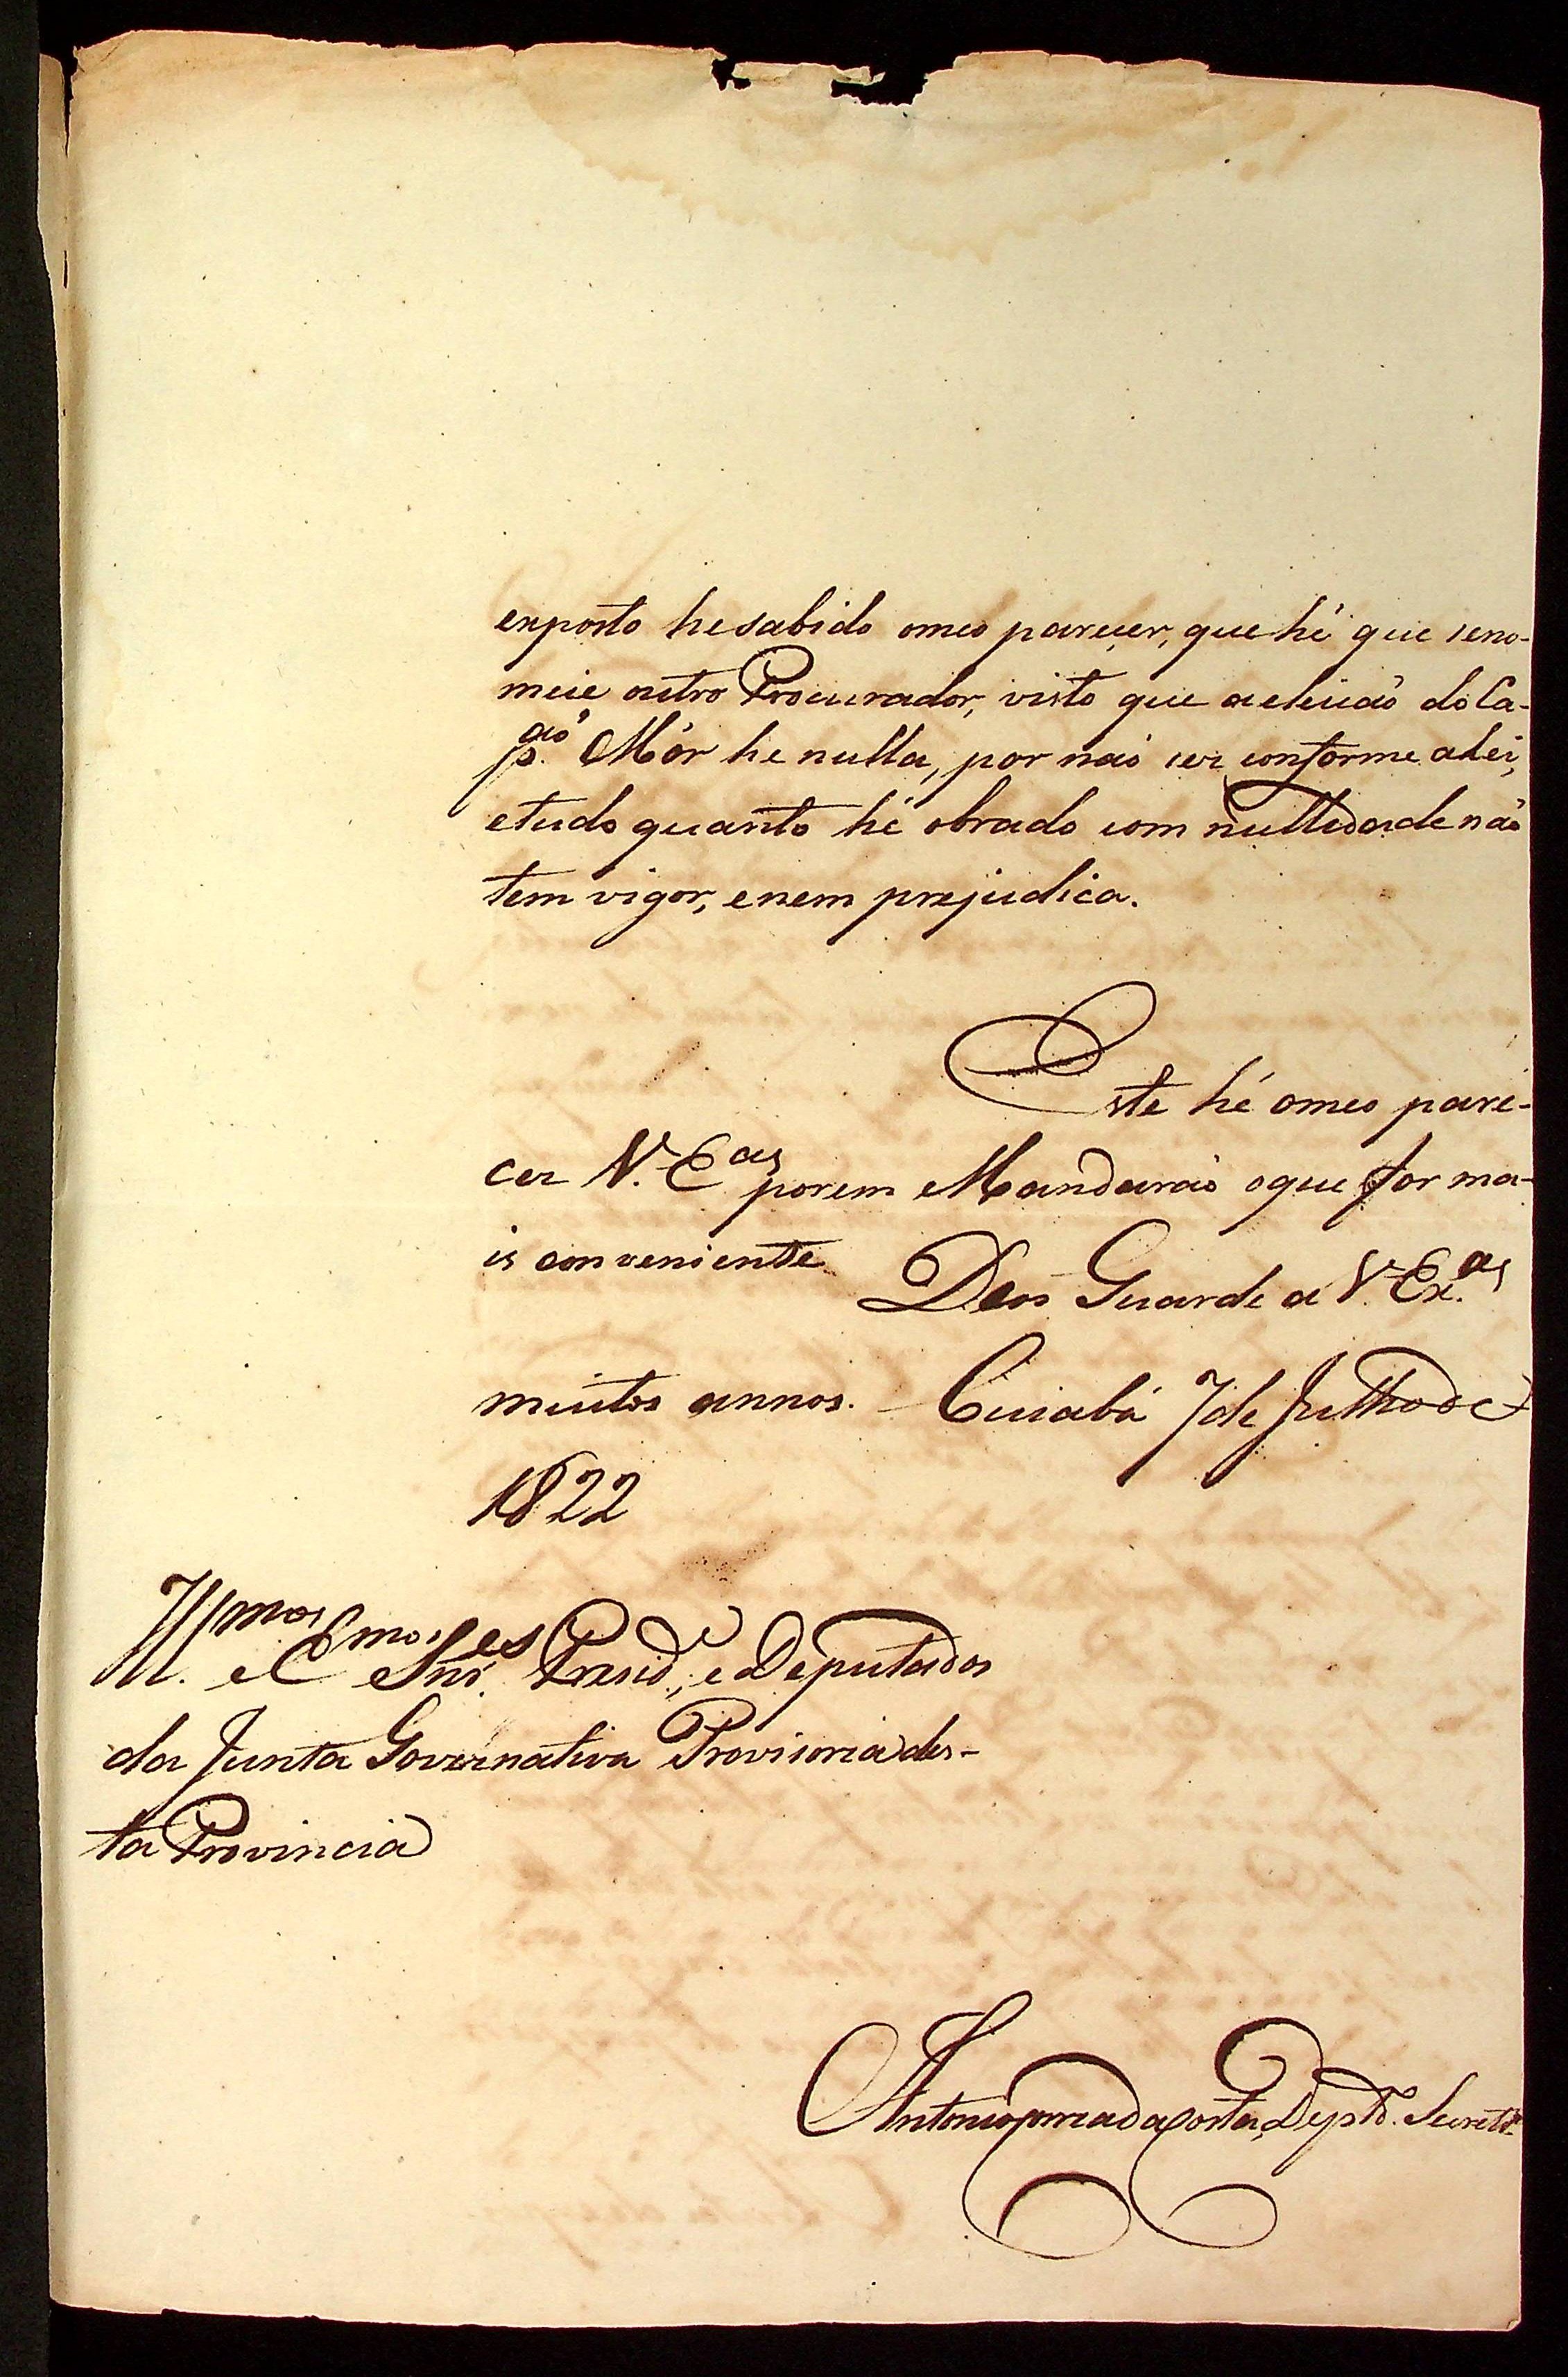 exposto he sabido o meo pareçer, que hé que se no-
meie outro Procurador, visto que a eleição do Ca-
p.ão Mór he nulla, por não ser conforme a Lei,
e tudo quanto hé obrado com nullidade não
tem vigor, e nem prejudica.
Este hé o meo pare-
cer V. Eas porem Mandarão o que for ma-
is conveniente
Deos Guarde a V. Ex.as
muitos annos. Cuiabá 7 de Julho de
1822
Ill.mos e Emos Snr.es Presid.e, e Deputados
da Junta Governativa Provisoria des-
ta Provincia
Antonio Correa da Costa, Dept.o Secret.o